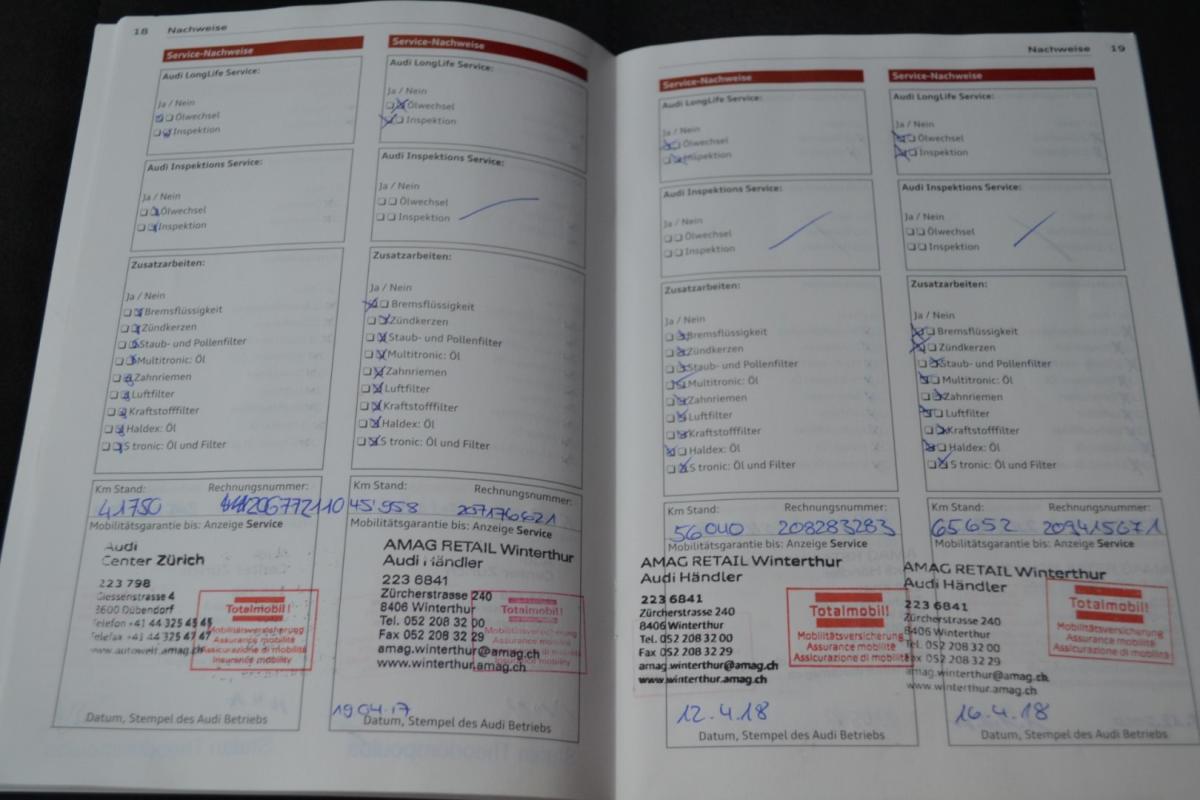 18 Nachweise
Service-Nachweise
Audi LongLife Service:
Ja / Nein
Ölwechsel
Inspektion
Audi Inspektions Service:
Ja / Nein
Ölwechsel
Inspektion
Zusatzarbeiten:
Ja / Nein
Bremsflüssigkeit
Zündkerzen
Staub- und Pollenfilter
Multitronic: Öl
Zahnriemen
Luftfilter
Kraftstofffilter
Haldex: Öl
S tronic: Öl und Filter
Km Stand: Rechnungsnummer:
41750 206772110
Mobilitätsgarantie bis: Anzeige Service
Audi
Center Zürich
223 798
Giessenstrasse 4
8600 Dübendorf
Telefon +41 44 325 45 45
Telefax +41 44 325 47 47
www.autowelt.amag.ch
Totalmobil!
Mobilitätsversicherung
Assurance mobilité
Assicurazione di mobilità
Insurance mobility
Datum, Stempel des Audi Betriebs
Service-Nachweise
Audi LongLife Service:
Ja / Nein
Ölwechsel
Inspektion
Audi Inspektions Service:
Ja / Nein
Ölwechsel
Inspektion
Zusatzarbeiten:
Ja / Nein
Bremsflüssigkeit
Zündkerzen
Staub- und Pollenfilter
Multitronic: Öl
Zahnriemen
Luftfilter
Kraftstofffilter
Haldex: Öl
S tronic: Öl und Filter
Km Stand: Rechnungsnummer:
45'958 207176621
Mobilitätsgarantie bis: Anzeige Service
AMAG RETAIL Winterthur
Audi Händler
223 6841
Zürcherstrasse 240
8406 Winterthur
Tel. 052 208 32 00
Fax 052 208 32 29
amag.winterthur@amag.ch
www.winterthur.amag.ch
Totalmobil!
Mobilitätsversicherung
Assurance mobilité
19.04.17
Datum, Stempel des Audi Betriebs
Nachweise 19
Service-Nachweise
Audi LongLife Service:
Ja / Nein
Ölwechsel
Inspektion
Audi Inspektions Service:
Ja / Nein
Ölwechsel
Inspektion
Zusatzarbeiten:
Ja / Nein
Bremsflüssigkeit
Zündkerzen
Staub- und Pollenfilter
Multitronic: Öl
Zahnriemen
Luftfilter
Kraftstofffilter
Haldex: Öl
S tronic: Öl und Filter
Km Stand: Rechnungsnummer:
56040 208283283
Mobilitätsgarantie bis: Anzeige Service
AMAG RETAIL Winterthur
Audi Händler
223 6841
Zürcherstrasse 240
8406 Winterthur
Tel. 052 208 32 00
Fax 052 208 32 29
amag.winterthur@amag.ch
www.winterthur.amag.ch
Totalmobil!
Mobilitätsversicherung
Assurance mobilité
Assicurazione di mobilità
12.4.18
Datum, Stempel des Audi Betriebs
Service-Nachweise
Audi LongLife Service:
Ja / Nein
Ölwechsel
Inspektion
Audi Inspektions Service:
Ja / Nein
Ölwechsel
Inspektion
Zusatzarbeiten:
Ja / Nein
Bremsflüssigkeit
Zündkerzen
Staub- und Pollenfilter
Multitronic: Öl
Zahnriemen
Luftfilter
Kraftstofffilter
Haldex: Öl
S tronic: Öl und Filter
Km Stand: Rechnungsnummer:
65652 209415671
Mobilitätsgarantie bis: Anzeige Service
AMAG RETAIL Winterthur
Audi Händler
223 6841
Zürcherstrasse 240
8406 Winterthur
Tel. 052 208 32 00
Fax 052 208 32 29
amag.winterthur@amag.ch
www.winterthur.amag.ch
Totalmobil!
Mobilitätsversicherung
Assurance mobilité
Assicurazione di mobilità
16.4.18
Datum, Stempel des Audi Betriebs